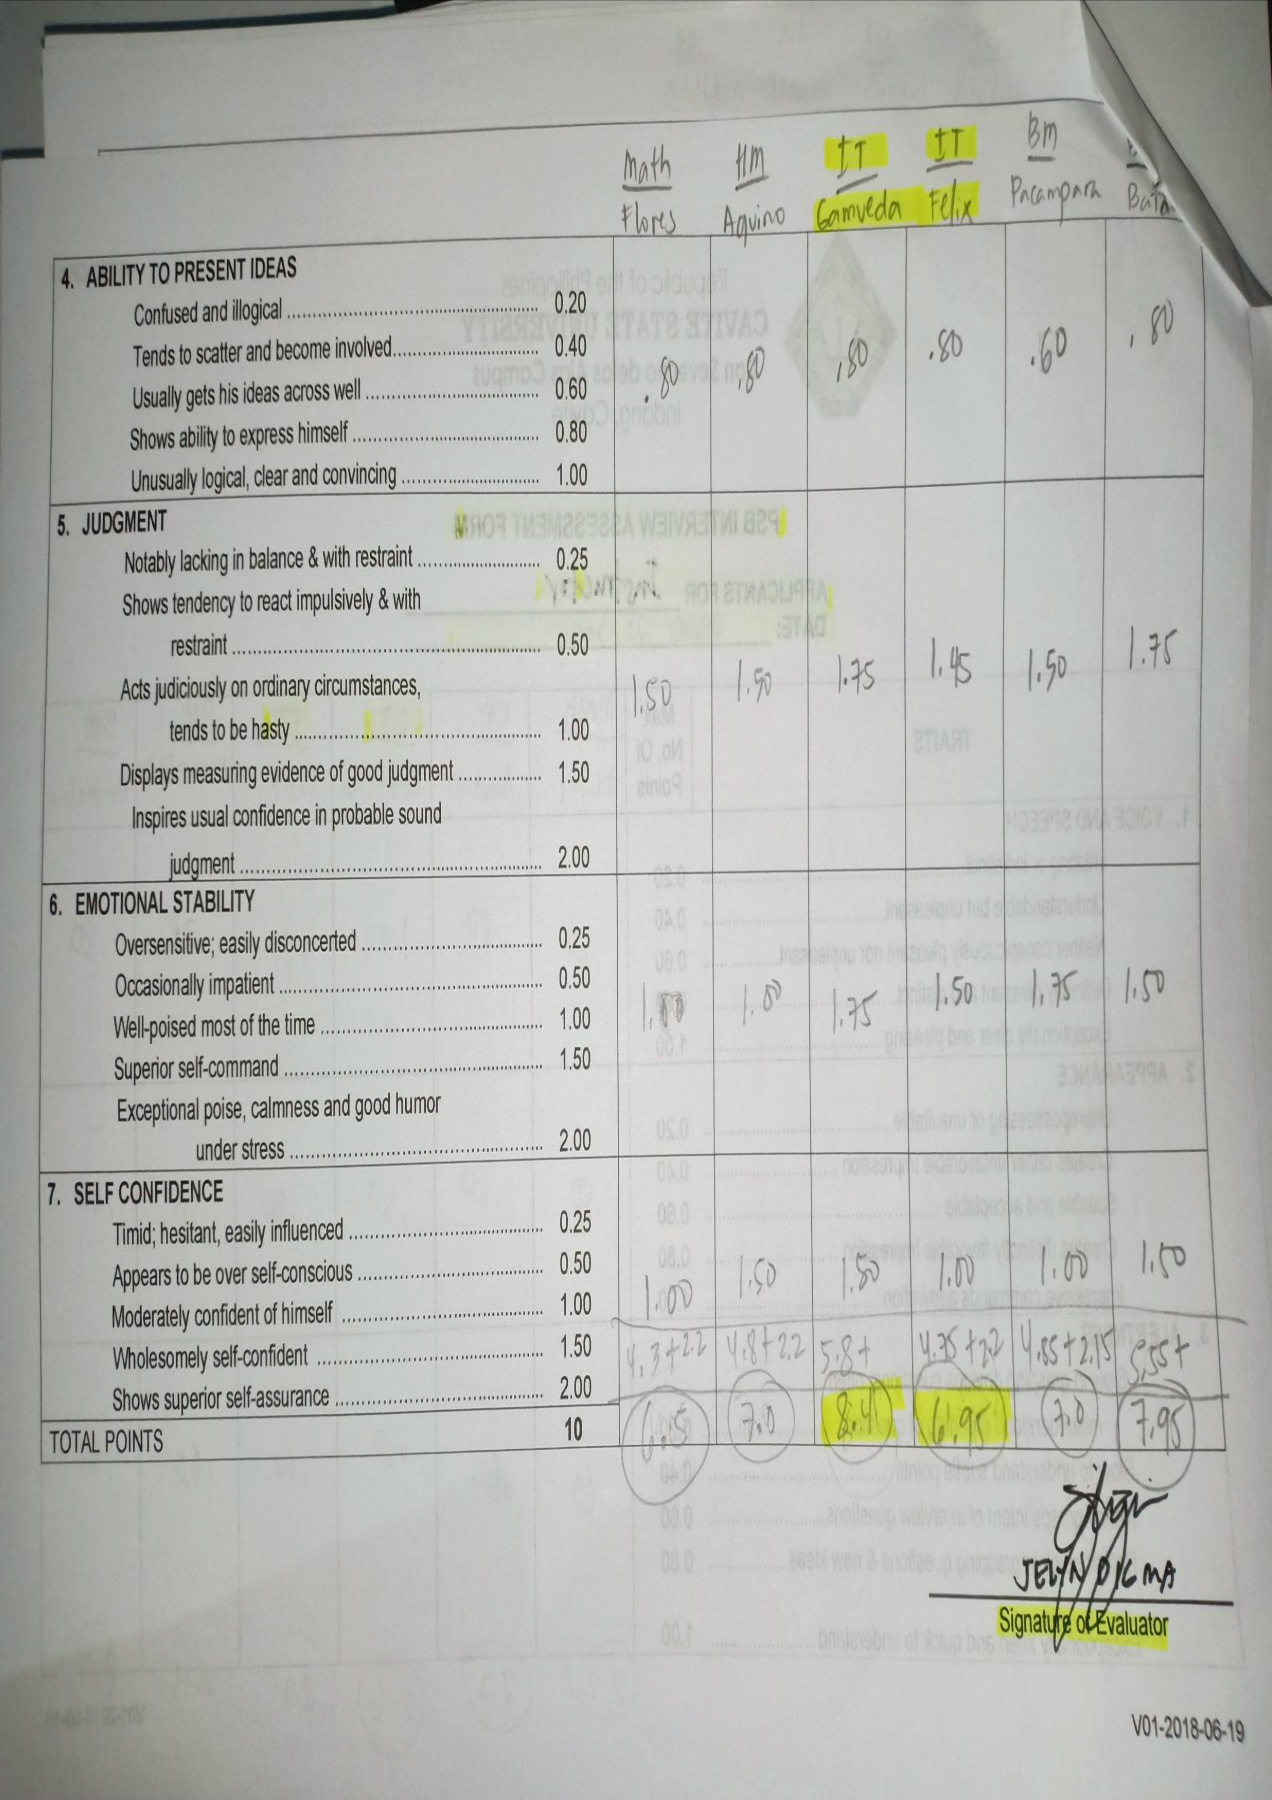 Math HM IT IT BM
Flores Aquino Gamveda Felix Pacampara
4. ABILITY TO PRESENT IDEAS
Confused and illogical 0.20
Tends to scatter and become involved 0.40
Usually gets his ideas across well 0.60
Shows ability to express himself 0.80
Unusually logical, clear and convincing 1.00
.80 .80 .80 .80 .60 .80
5. JUDGMENT
Notably lacking in balance & with restraint 0.25
Shows tendency to react impulsively & with
restraint 0.50
Acts judiciously on ordinary circumstances,
tends to be hasty 1.00
Displays measuring evidence of good judgment 1.50
Inspires usual confidence in probable sound
judgment 2.00
1.50 1.50 1.75 1.45 1.50 1.75
6. EMOTIONAL STABILITY
Oversensitive; easily disconcerted 0.25
Occasionally impatient 0.50
Well-poised most of the time 1.00
Superior self-command 1.50
Exceptional poise, calmness and good humor
under stress 2.00
1.00 1.00 1.75 1.50 1.75 1.50
7. SELF CONFIDENCE
Timid; hesitant, easily influenced 0.25
Appears to be over self-conscious 0.50
Moderately confident of himself 1.00
Wholesomely self-confident 1.50
Shows superior self-assurance 2.00
1.00 1.50 1.50 1.00 1.00 1.50
4.3+2.2 4.8+2.2 5.8+ 4.75+2.2 4.85+2.15 5.55+
TOTAL POINTS 10 6.5 7.0 8.4 6.95 7.0 7.95
JELYN DIGMA
Signature of Evaluator
V01-2018-06-19